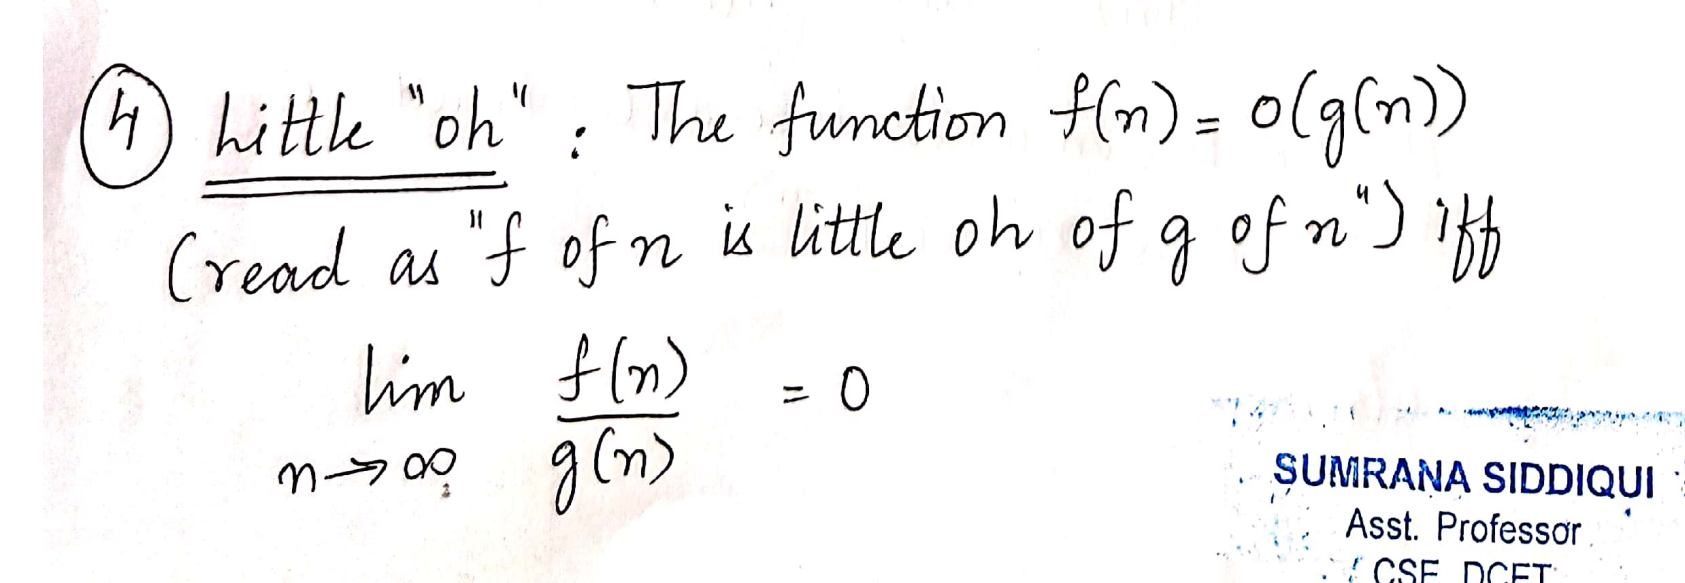 ④ Little "oh" : The function f(n) = o(g(n))
(read as "f of n is little oh of g of n") iff
lim f(n) = 0
n→∞ g(n)
SUMRANA SIDDIQUI
Asst. Professor
CSE DCET